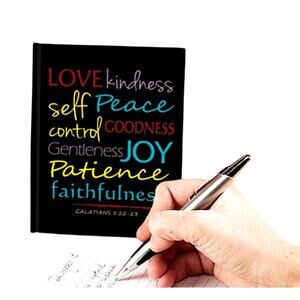 LOVE kindness
self Peace
control GOODNESS
Gentleness JOY
Patience
faithfulness
GALATIANS 5:22-23